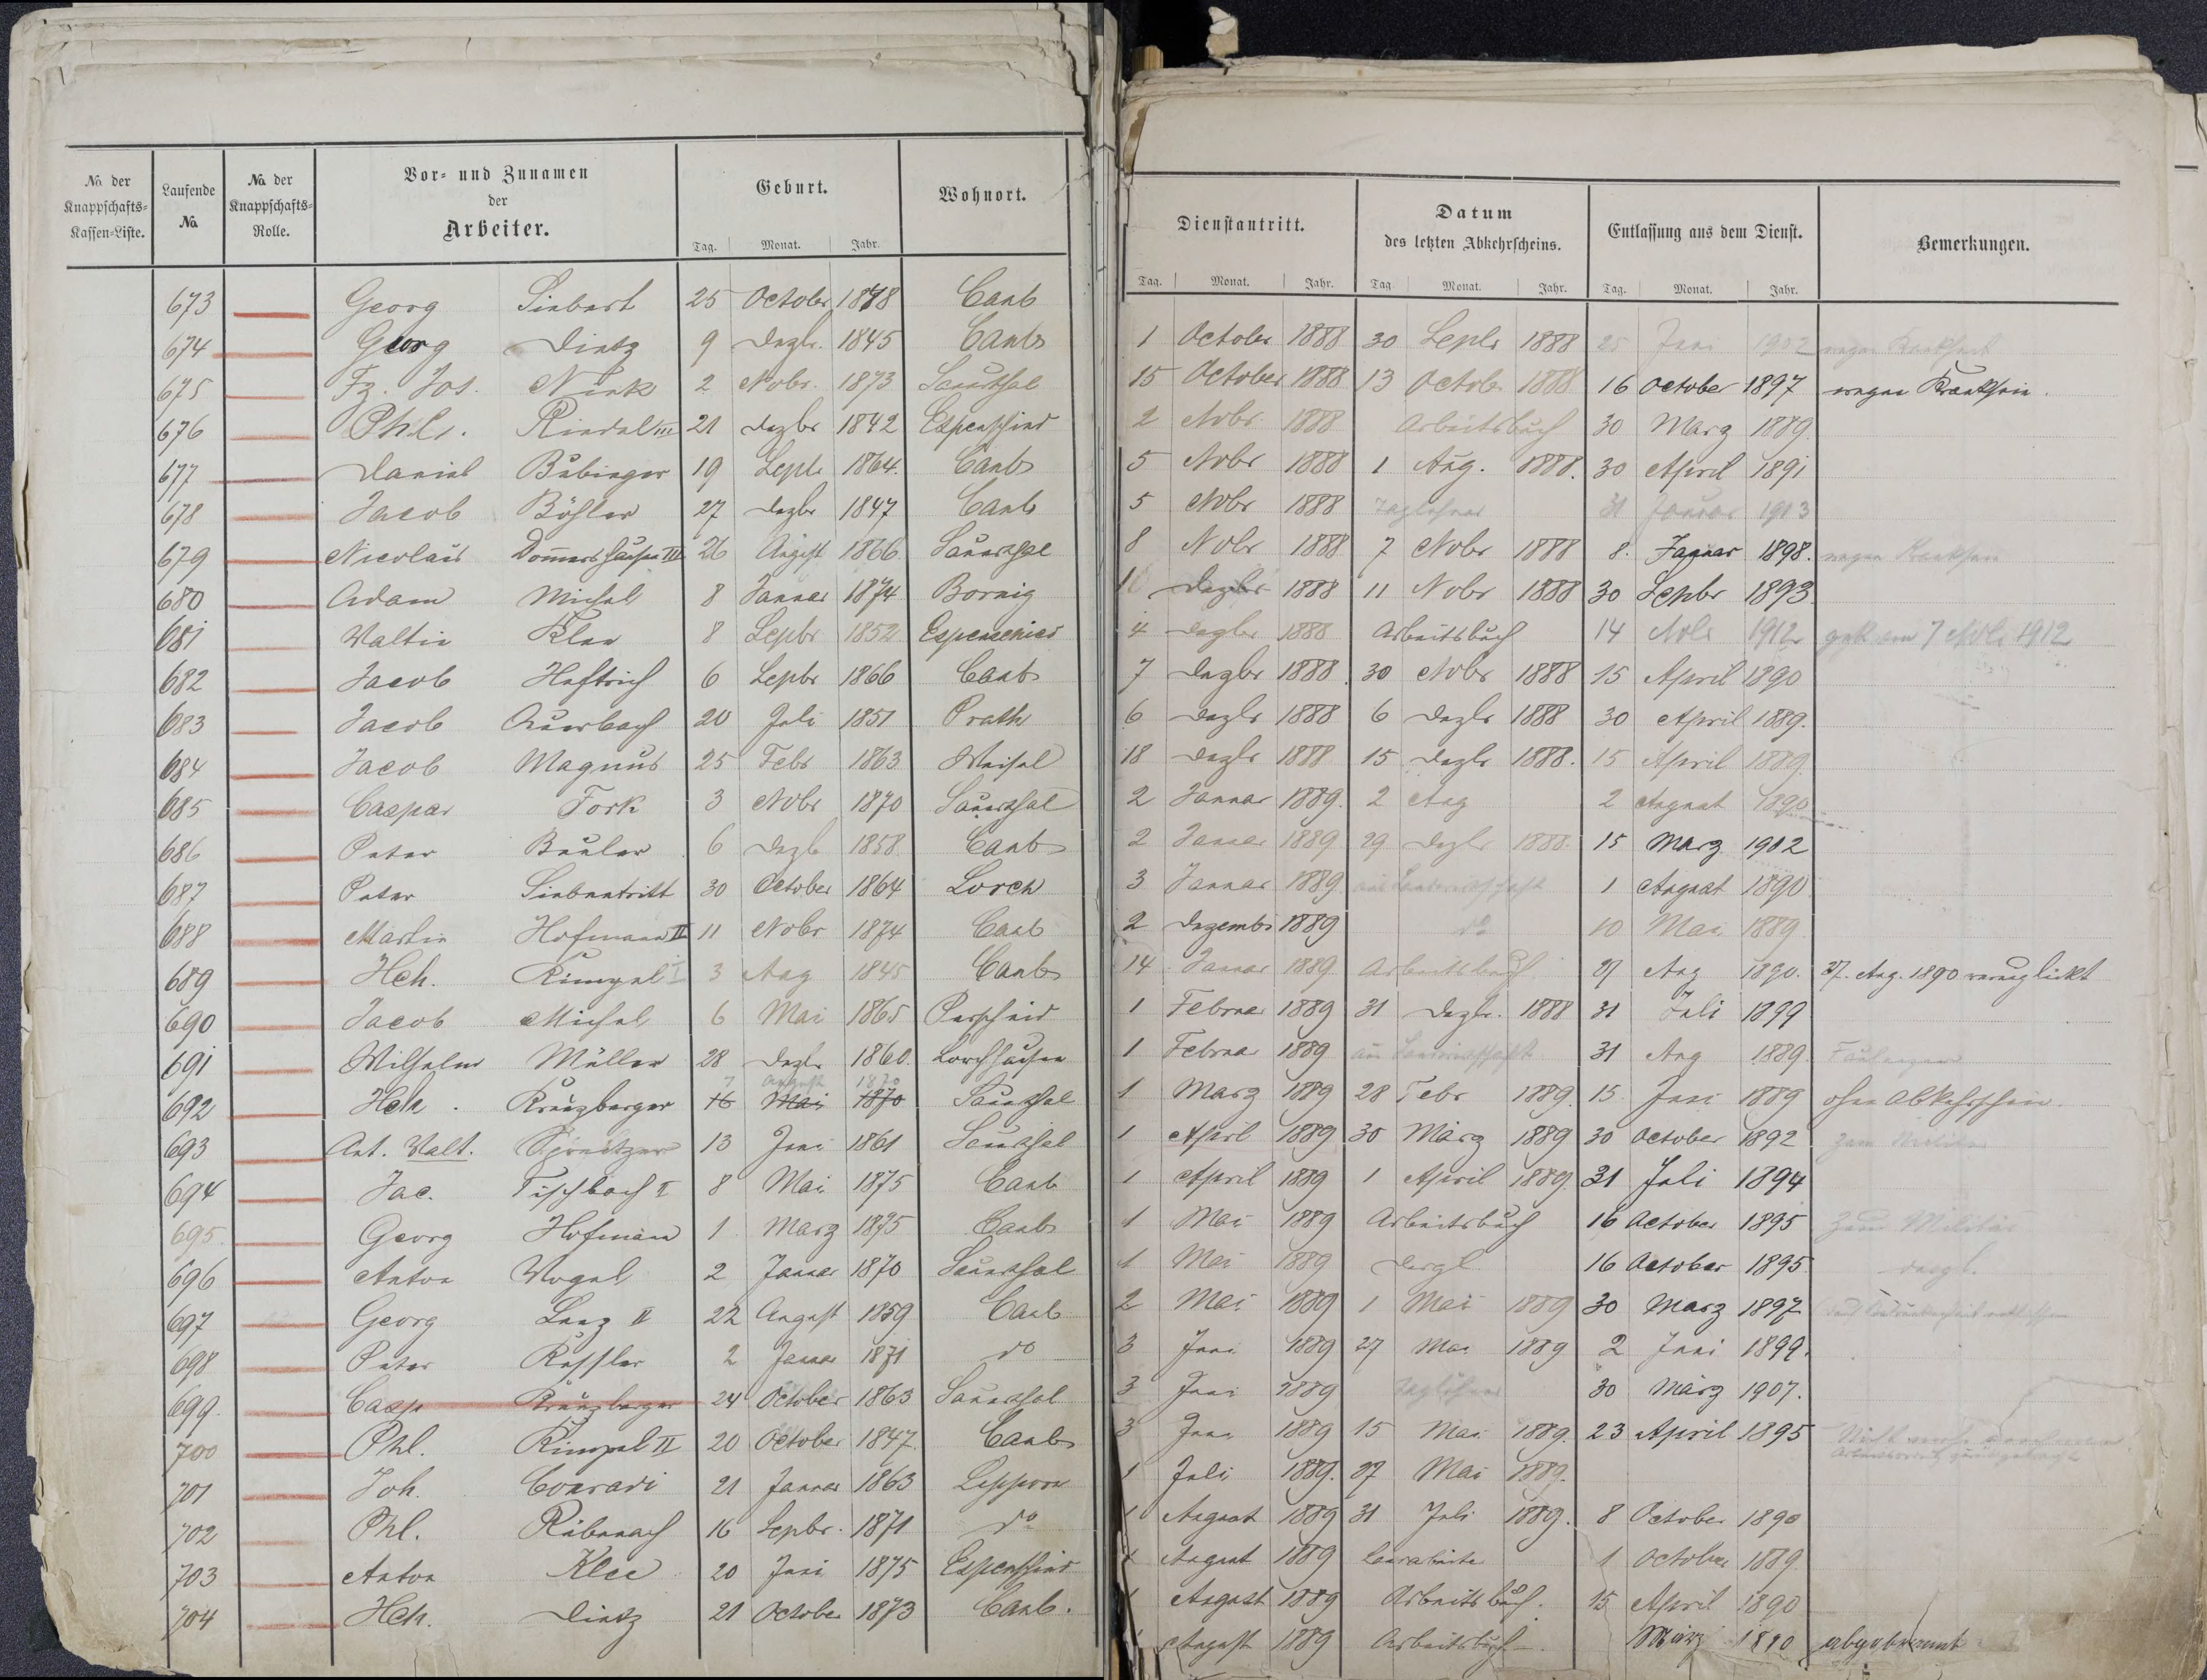 No. der Knappschafts-Kassen-Liste. Laufende No. No. der Knappschafts-Rolle. Vor- und Zunamen der Arbeiter. Geburt. Wohnort.
Tag. Monat. Jahr.
673 Georg Siebert 25 October 1878 Caub
674 Georg Dietz 9 Dezbr. 1845 Caub
675 Fz. Jos. Nink 2 Nobr. 1873 Sauerthal
676 Phil. Riedel III 21 Dezbr 1842 Espenschied
677 Daniel Bübinger 19 Septr 1864. Caub
678 Jacob Böhler 27 Dezbr 1847 Caub
679 Nicolaus Dommershausen III 26 August 1866 Sauerthal
680 Adam Michel 8 Januar 1874 Bornig
681 Valtin Klee 8 Sepbr 1852 Espenschied
682 Jacob Heftrich 6 Sepbr 1866 Caub
683 Jacob Auerbach 20 Juli 1851 Prath
684 Jacob Magnus 25 Febr 1863 Weisel
685 Caspar Fork 3 Nobr 1870 Sauerthal
686 Peter Beuler 6 Dezb 1858 Caub
687 Peter Siebentritt 30 October 1864 Lorch
688 Martin Hofmann II 11 Nobr 1874 Caub
689 Hch. Kimpel I 3 Aug 1845 Caub
690 Jacob Michel 6 Mai 1865 Perscheid
691 Wilhelm Müller 28 Dezbr 1860. Lorchhausen
7 August 1870
692 Hch. Kreuzberger 16 Mai 1870 Sauerthal
693 Ant. Valt. Spreitzer 13 Juni 1861 Sauerthal
694 Jac. Fischbach I 8 Mai 1875 Caub
695. Georg Hofmann 1 Marz 1875 Caub
696 Anton Vogel 2 Januar 1870 Sauerthal
697 Georg Lenz II 22 August 1859 Caub
698 Peter Kessler 2 Januar 1871 do
699. Casp Kreuzberger 24 October 1863 Sauerthal
700 Phl. Kimpel II 20 October 1847. Caub
701 Joh. Conradi 21 Januar 1863 Lipporn
702 Phl. Rübenach 16 Sepbr. 1871 do
703 Anton Klee 20 Juni 1875 Espenschied
704 Hch. Dietz 21 October 1873 Caub.
Dienstantritt. Datum des letzten Abkehrscheins. Entlassung aus dem Dienst. Bemerkungen.
Tag. Monat. Jahr. Tag. Monat. Jahr. Tag. Monat. Jahr.
1 October 1888 30 Septr 1888 25 Juni 1902 wegen Krankheit
15 October 1888 13 Octob. 1888. 16 October 1897 wegen Krankhein.
2 Nobr. 1888 Arbeitsbuch 30 Marz 1889.
5 Nobr 1888 1 Aug. 1888. 30 April 1891
5 Nobr 1888 Taglohner 31 Januar 1913
8 Nobr 1888 7 Nobr 1888 8. Januar 1898. wegen
Dezbr 1888 11 Nobr 1888 30 Sepbr 1893.
4 Dezbr 1888 Arbeitsbuch 14 Nobr 1912 7 Nobr 1912
7 Dezbr 1888. 30 Nobr 1888 15 April 1890
6 Dezbr 1888 6 Dezbr 1888 30 April 1889.
18 Dezbr 1888 15 Dezbr 1888. 15 April 1889.
2 Januar 1889. 2 Aug 2 August 1890.
2 Januar 1889 29 Dezbr 1888. 15 Marz 1902
3 Januar 1889. aus Landwirthschaft 1 August 1890
2 Dezembr 1889 do 10 Mai 1889.
14 Januar 1889. Arbeitsbuch 27 Aug 1890. 27. Aug. 1890 verunglückt
1 Februar 1889 31 Dezbr. 1888 31 Juli 1899
1 Februar 1889 aus Landwirthschaft 31 Aug 1889.
1 Marz 1889 28 Febr 1889. 15. Juni 1889 ohne Abkehrschein.
1 April 1889 30 März 1889 30 October 1892 zum Militär
1 April 1889 1 April 1889. 31 Juli 1894
1 Mai 1889 Arbeitsbuch 16 October 1895 zum Militär
1 Mai 1889 dergl 16 October 1895 dergl.
2 Mai 1889 1 Mai 1889 30 Marz 1897
3 Juni 1889 27 Mai 1889 2 Juni 1899.
3 Juni 1889 Taglöhner 30 März 1907.
3 Juni 1889 15 Mai 1889. 23 April 1895
1 Juli 1889. 27 Mai 1889.
1 August 1889 31 Juli 1889. 8 October 1890
1 August 1889 1 October 1889.
1 August 1889 Arbeitsbuch. 15 April 1890
August 1889 Arbeitsbuch. März 1890